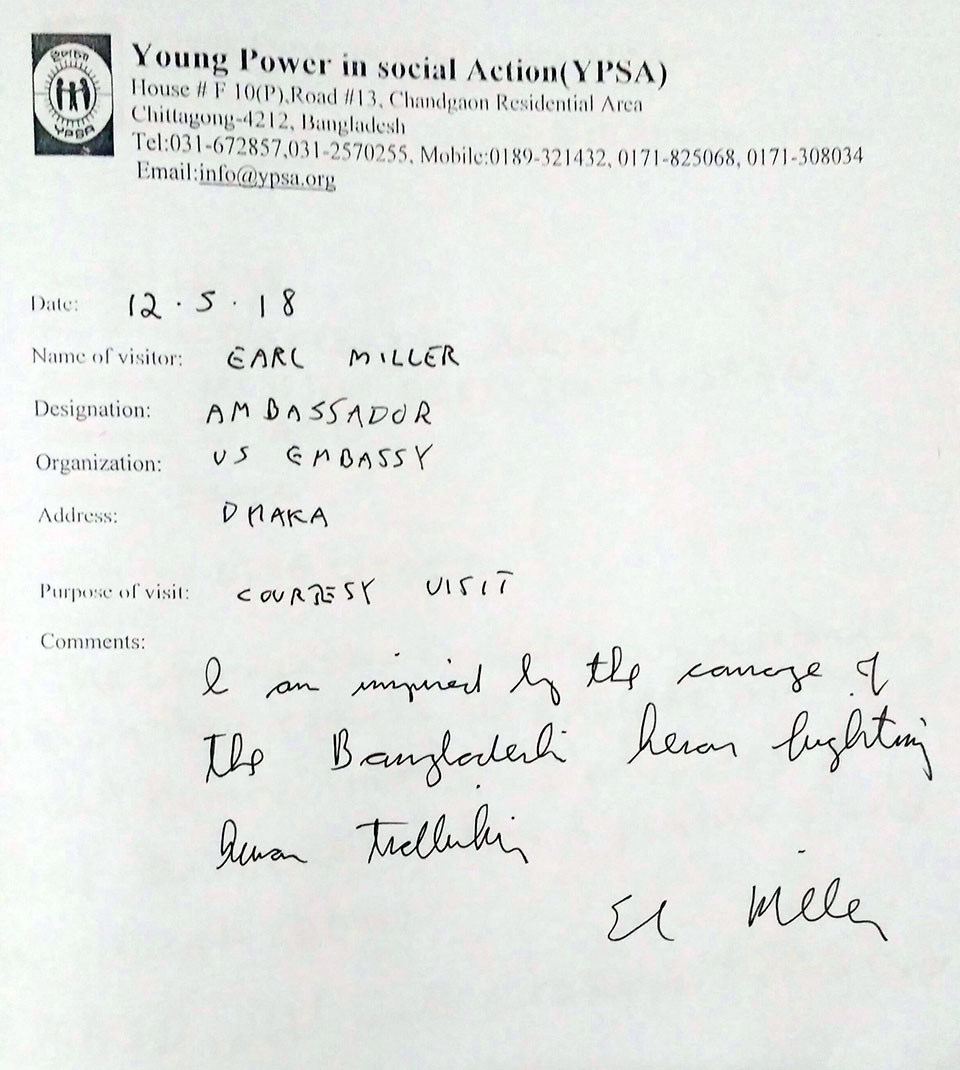 ইপসা
YPSA
Young Power in social Action(YPSA)
House # F 10(P),Road #13, Chandgaon Residential Area
Chittagong-4212, Bangladesh
Tel:031-672857,031-2570255, Mobile:0189-321432, 0171-825068, 0171-308034
Email:info@ypsa.org
Date: 12.5.18
Name of visitor: EARL MILLER
Designation: AMBASSADOR
Organization: US EMBASSY
Address: DHAKA
Purpose of visit: COURTESY VISIT
Comments:
I am inspired by the courage of
the Bangladeshi heroes fighting
human trafficking
Earl Miller